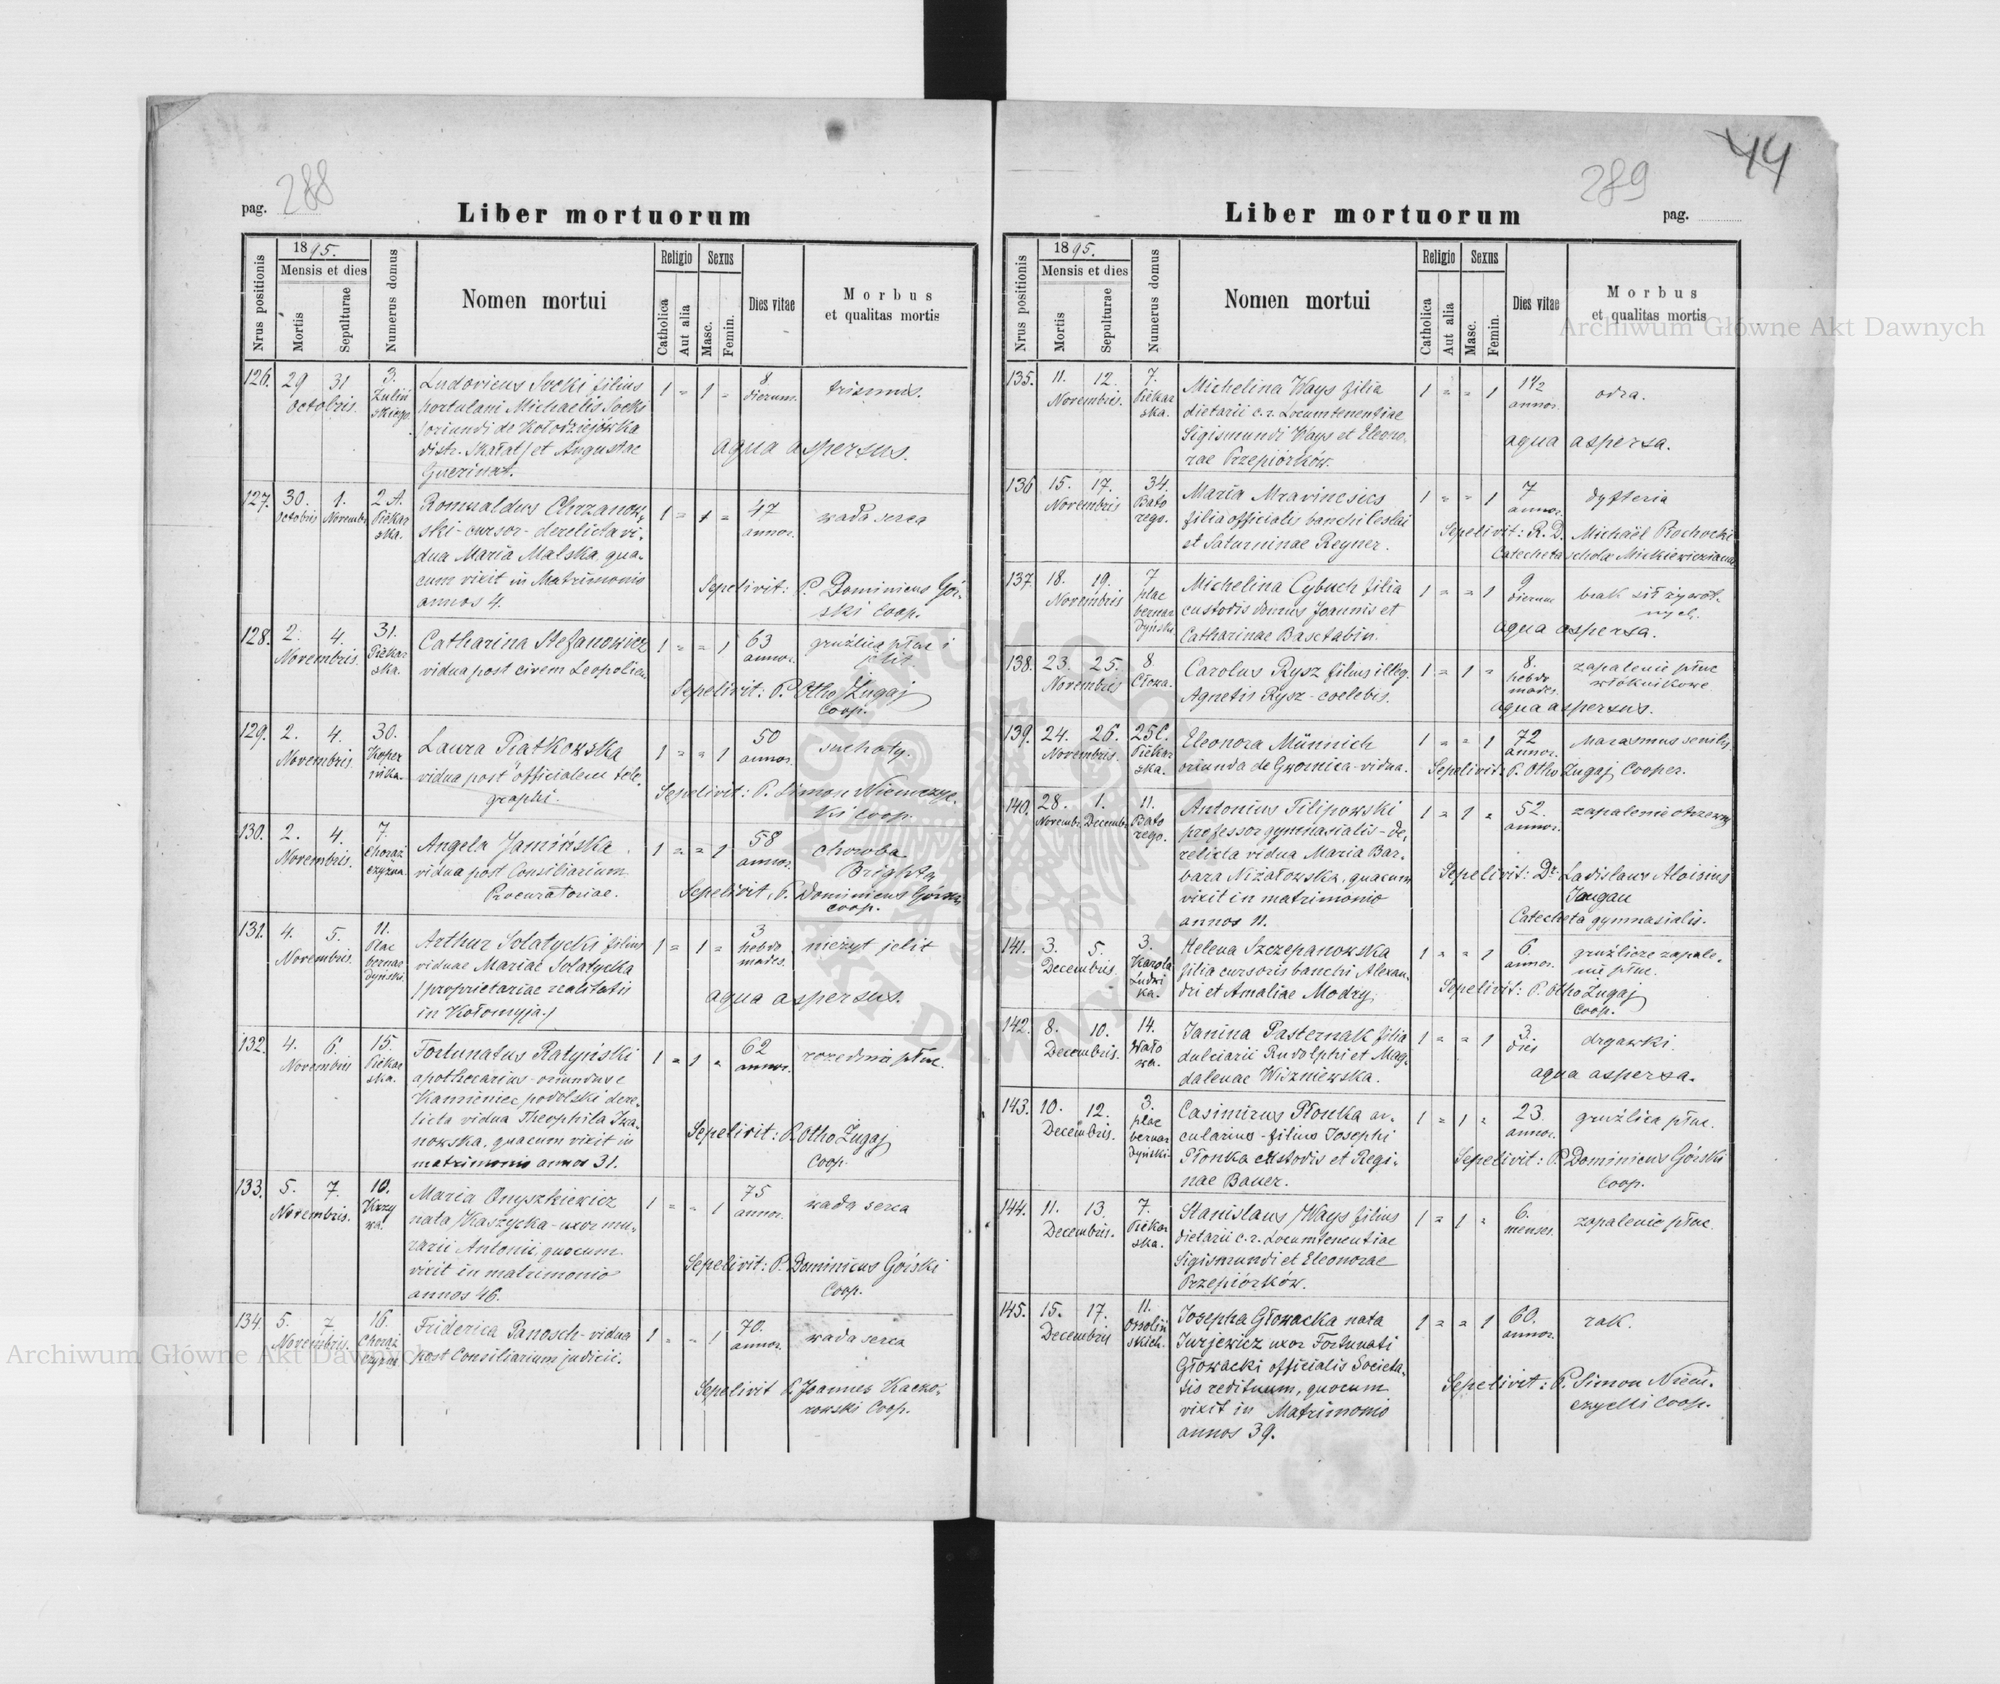 288
pag.
Liber mortuorum
Nrus positionis
1895.
Mensis et dies
Mortis
Sepulturae
Numerus domus
Nomen mortui
Religio
Catholica
Aut alia
Sexus
Masc.
Femin.
Dies vitae
Morbus
et qualitas mortis
126. 29 31 3. Ludovicus Socki filius 1 = 1 = 8 trismus.
Octobris. portulani Michaelis Socki dierum.
/oriundi de Kołodziejówka
distr. Skałat/ et Augustae aqua aspersus.
127. 30. 1. 2 A. Romualdus Chrzanow 1 = 1 = 47 wada serca
Octobris Novembr. Piekar ski - cursor - derelicta vi- annor.
ska. dua Maria Malska, qua-
cum vixit in Matrimonio Sepelivit: P. Dominicus Gór-
annos 4. ski Coop.
128. 2. 4. 31. Catharina Stefanowicz 1 = = 1 63 gruźlica płuc i
Novembris. Piekar vidua post civem Leopolien. annor. jelit
ska. Sepelivit: P. Otho Zugaj
Coop.
129. 2. 4. 30. Laura Piatkowska 1 = = 1 50 suchoty.
Novembris. Koper vidua post officialem tele- annor.
nika. graphi. Sepelivit: P. Simon Niemczyc-
ki Coop.
130. 2. 4. 7. Angela Jamińska 1 = = 1 58 choroba
Novembris. Chorąż vidua post Consiliarium annor. Brighta
czyzna. Procuratoriae. Sepelivit, P. Dominicus Górski
Coop.
131. 4. 5. 11. Arthur Solatycki filius 1 = 1 = 3 nieżyt jelit
Novembris. Plac viduae Mariae Solatycka hebdo
bernar /proprietariae realitatis mades.
dyński. in Kołomyja./ aqua aspersus.
132. 4. 6. 15. Fortunatus Ratyński 1 = 1 = 62 rozedma płuc.
Novembris Piekar apothecarius - oriundus e annor.
ska. Kamieniec podolski dere-
licta vidua Theophila Iwa-
nowska, quacum vixit in Sepelivit: P. Otho Zugaj
matrimonio annos 31. Coop.
133. 5. 7. 10. Maria Onyszkiewicz 1 = = 1 75 wada serca
Novembris. Krzy nata Kaszycka - uxor mu- annor.
wa. rarii Antonii, quocum
vixit in matrimonio Sepelivit: P. Dominicus Górski
annos 46. Coop.
134. 5. 7. 16. Friderica Panosch - vidua 1 = = 1 70. wada serca
Novembris. Chorąż post Consiliarium judicii. annor.
czyzna Sepelivit P. Joannes Kaczo-
rowski Coop.
289
44
Liber mortuorum
pag.
Nrus positionis
1895.
Mensis et dies
Mortis
Sepulturae
Numerus domus
Nomen mortui
Religio
Catholica
Aut alia
Sexus
Masc.
Femin.
Dies vitae
Morbus
et qualitas mortis
135. 11. 12. 7. Michelina Ways filia 1 = = 1 1 1/2 odra.
Novembris. Piekar dietarii c. r. Locumtenentiae annor.
ska. Sigismundi Ways et Eleono- aqua aspersa.
rae Przepiórków.
136 15. 17. 34. Maria Mravincsics 1 = = 1 7 dyfteria
Novembris Bato filia officialis banchi Ceslai annor.
rego. et Saturninae Reyner. Sepelivit: R. D. Michaël Rochocki
Catecheta scholae Mickiewiczianae
137. 18. 19. 7 Michelina Cybuch filia 1 = = 1 9 brak sił żywot-
Novembris plac custodis domus Joannis et dierum nych.
bernar Catharinae Basetabin. aqua aspersa.
dyński
138. 23. 25. 8. Carolus Rysz filius illeg. 1 = 1 = 8. zapalenie płuc
Novembris Cłowa. Agnetis Rysz - coelebis. hebdo włóknikowe
mades. aqua aspersus.
139. 24. 26. 25 C. Eleonora Münnich 1 = = 1 72 Marasmus senilis
Novembris. Piekar oriunda de Gwoznica - vidua. annor.
ska. Sepelivit: P. Otho Zugaj Cooper.
140. 28. 1. 11. Antonius Filipowski 1 = 1 = 52. zapalenie otrzewny
Novembr. Decembr. Bato professor gymnasialis - de- annor.
rego. relicta vidua Maria Bar-
bara Niżałowska, quacum Sepelivit: Dr. Ladislaus Aloisius
vixit in matrimonio Jaugau
annos 11. Catecheta gymnasialis.
141. 3. 5. 3. Helena Szczepanowska 1 = = 1 6. gruźlicze zapale-
Decembris. Karola filia cursoris banchi Alexan- annor. nie płuc.
Ludwi dri et Amaliae Modry. Sepelivit: P. Otho Zugaj
ka. Coop.
142. 8. 10. 14. Janina Pasternak filia 1 = = 1 3. drgawki.
Decembris. Wało dulciarii Rudolphi et Mag- dies
wa. dalenae Wiszniewska. aqua aspersa.
143. 10. 12. 3. Casimirus Płonka ar- 1 = 1 = 23 gruźlica płuc.
Decembris. plac cularius - filius Josephi annor.
bernar Płonka custodis et Regi- Sepelivit: P. Dominicus Górski
dyński. nae Bauer. Coop.
144. 11. 13. 7. Stanislaus Ways filius 1 = 1 = 6. zapalenie płuc.
Decembris. Piekar dietarii c. r. Locumtenentiae menses.
ska. Sigismundi et Eleonorae
Przepiórków.
145. 15. 17. 11. Josepha Głowacka nata 1 = = 1 60. rak.
Decembris Ossoliń Jurjewicz uxor Fortunati annor.
skich. Głowacki officialis Societa-
tis redituum, quocum Sepelivit: P. Simon Niem-
vixit in Matrimonio czycki Coop.
annos 39.
Archiwum Główne Akt Dawnych
Archiwum Główne Akt Dawnych